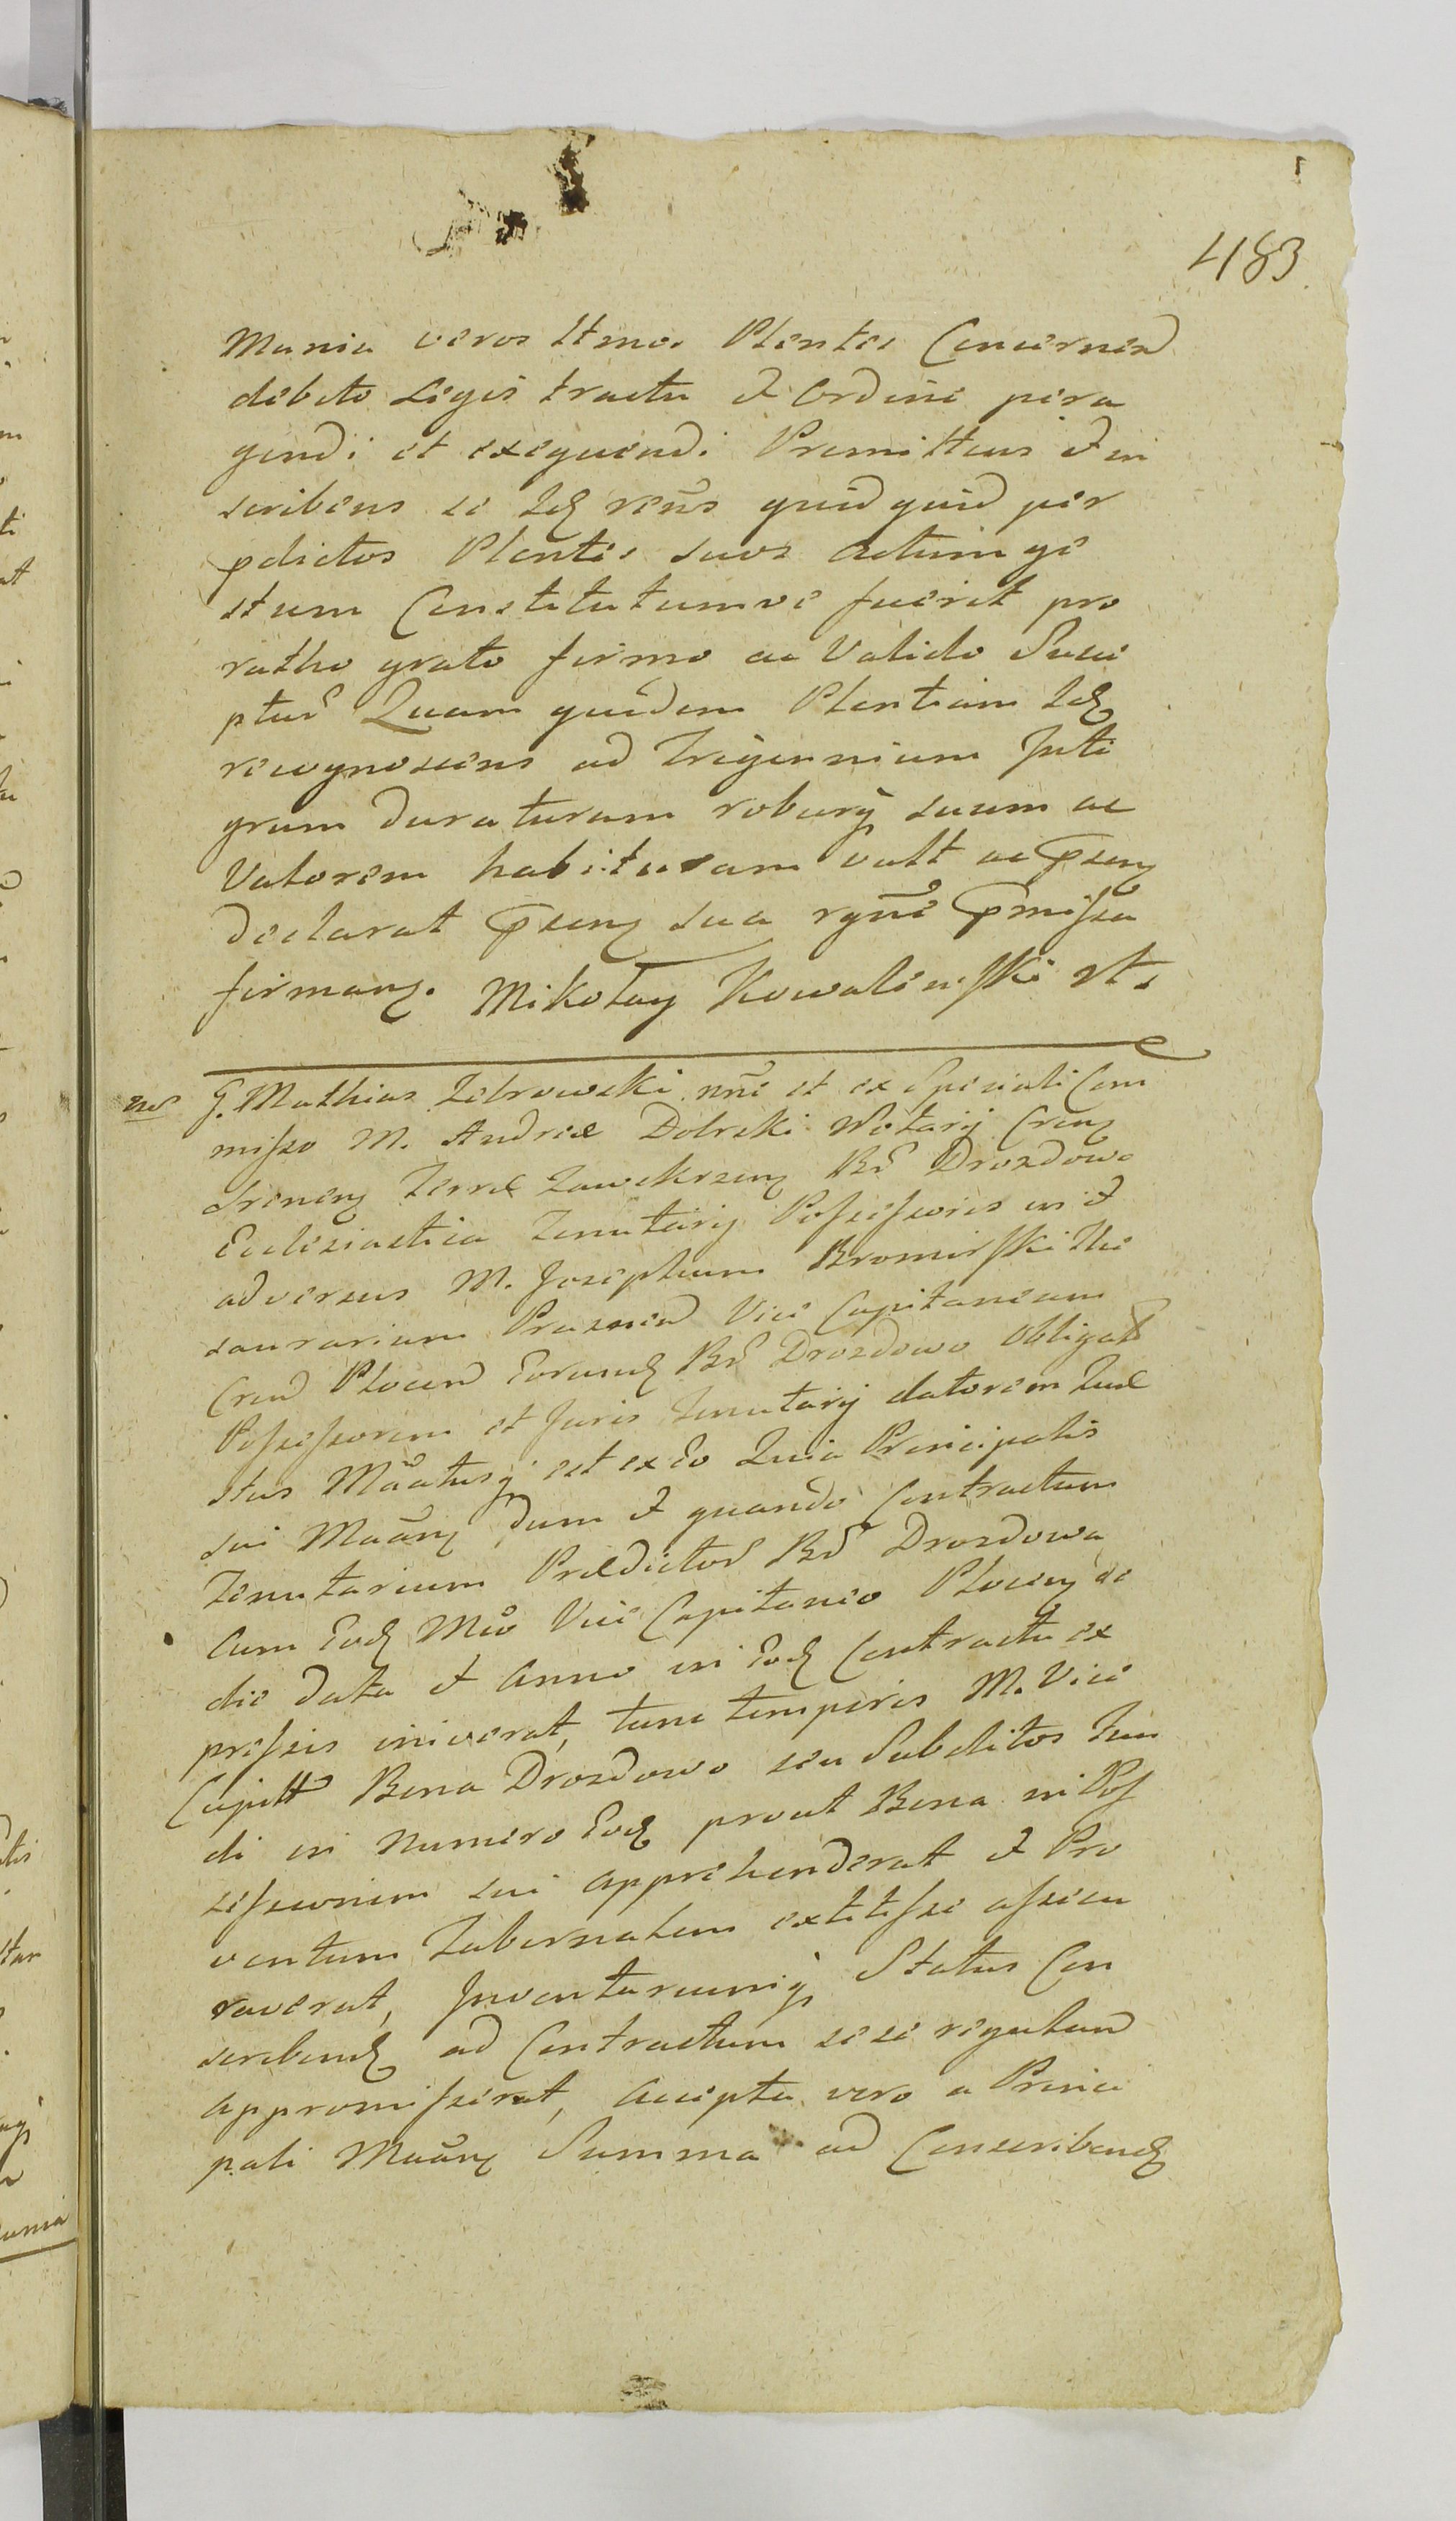 483
Munia veros Ltmos Plentes Concernen
debito Legis tractu et Ordine pera
gendi et exequendi Promittens et in
scribens se Idq recns quidquid per
pdictos Plentes suos Actum ge
stum Constitutumve fuerit pro
ratho grato firmo ac Valido Susce
ptur Quam quidem Plentiam Idq
recognoscens ad Trigennium Inte
grum duraturam roburq suum ac
Valorem habituram vult ac psenq
declarat psenq sua rgne pmissa
firmanq. Mikołay Kowalewski st.
G. Mathias Zebrowski nne et ex Speciali Com
misso M. Andreæ Dobrski Notarij Crenq
Srenenq Terræ Zawskrzenq Br Drozdowo
Ecclesiastica Tenutarij Possessoris in et
adversus M. Josephum Bromirski The
saurarium Praznen Vice Capitaneum
Cren Plocen Eorundq Br Drozdowo Obligat
Possessorem et Juris Tenutarij datorem Quæ
stus Maatusq est ex Eo Quia Principalis
sui Maanq dum et quando Contractum
Tenutarium Prædictor Br Drozdowo
Cum Eodq Mco Vice Capitaneo Plocenq de
die data et Anno in Eodq Contractu ex
pressis iniverat, tunc temporis M. Vice
Capitt Bona Drozdowo seu Subditos Tan
di in Numero Eodq prout Bona in Pos
sessionem sui apprehenderat et Pro
ventum Tabernalem extitisse assecu
raverat, Inventariumq Status Con
scribendq ad Contractum sese regulan
appromisserat, accepta vero a Princi
pali Maanq Summa ad Conscribendq